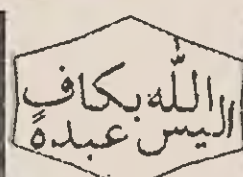 الله بكاف
اليس عبده